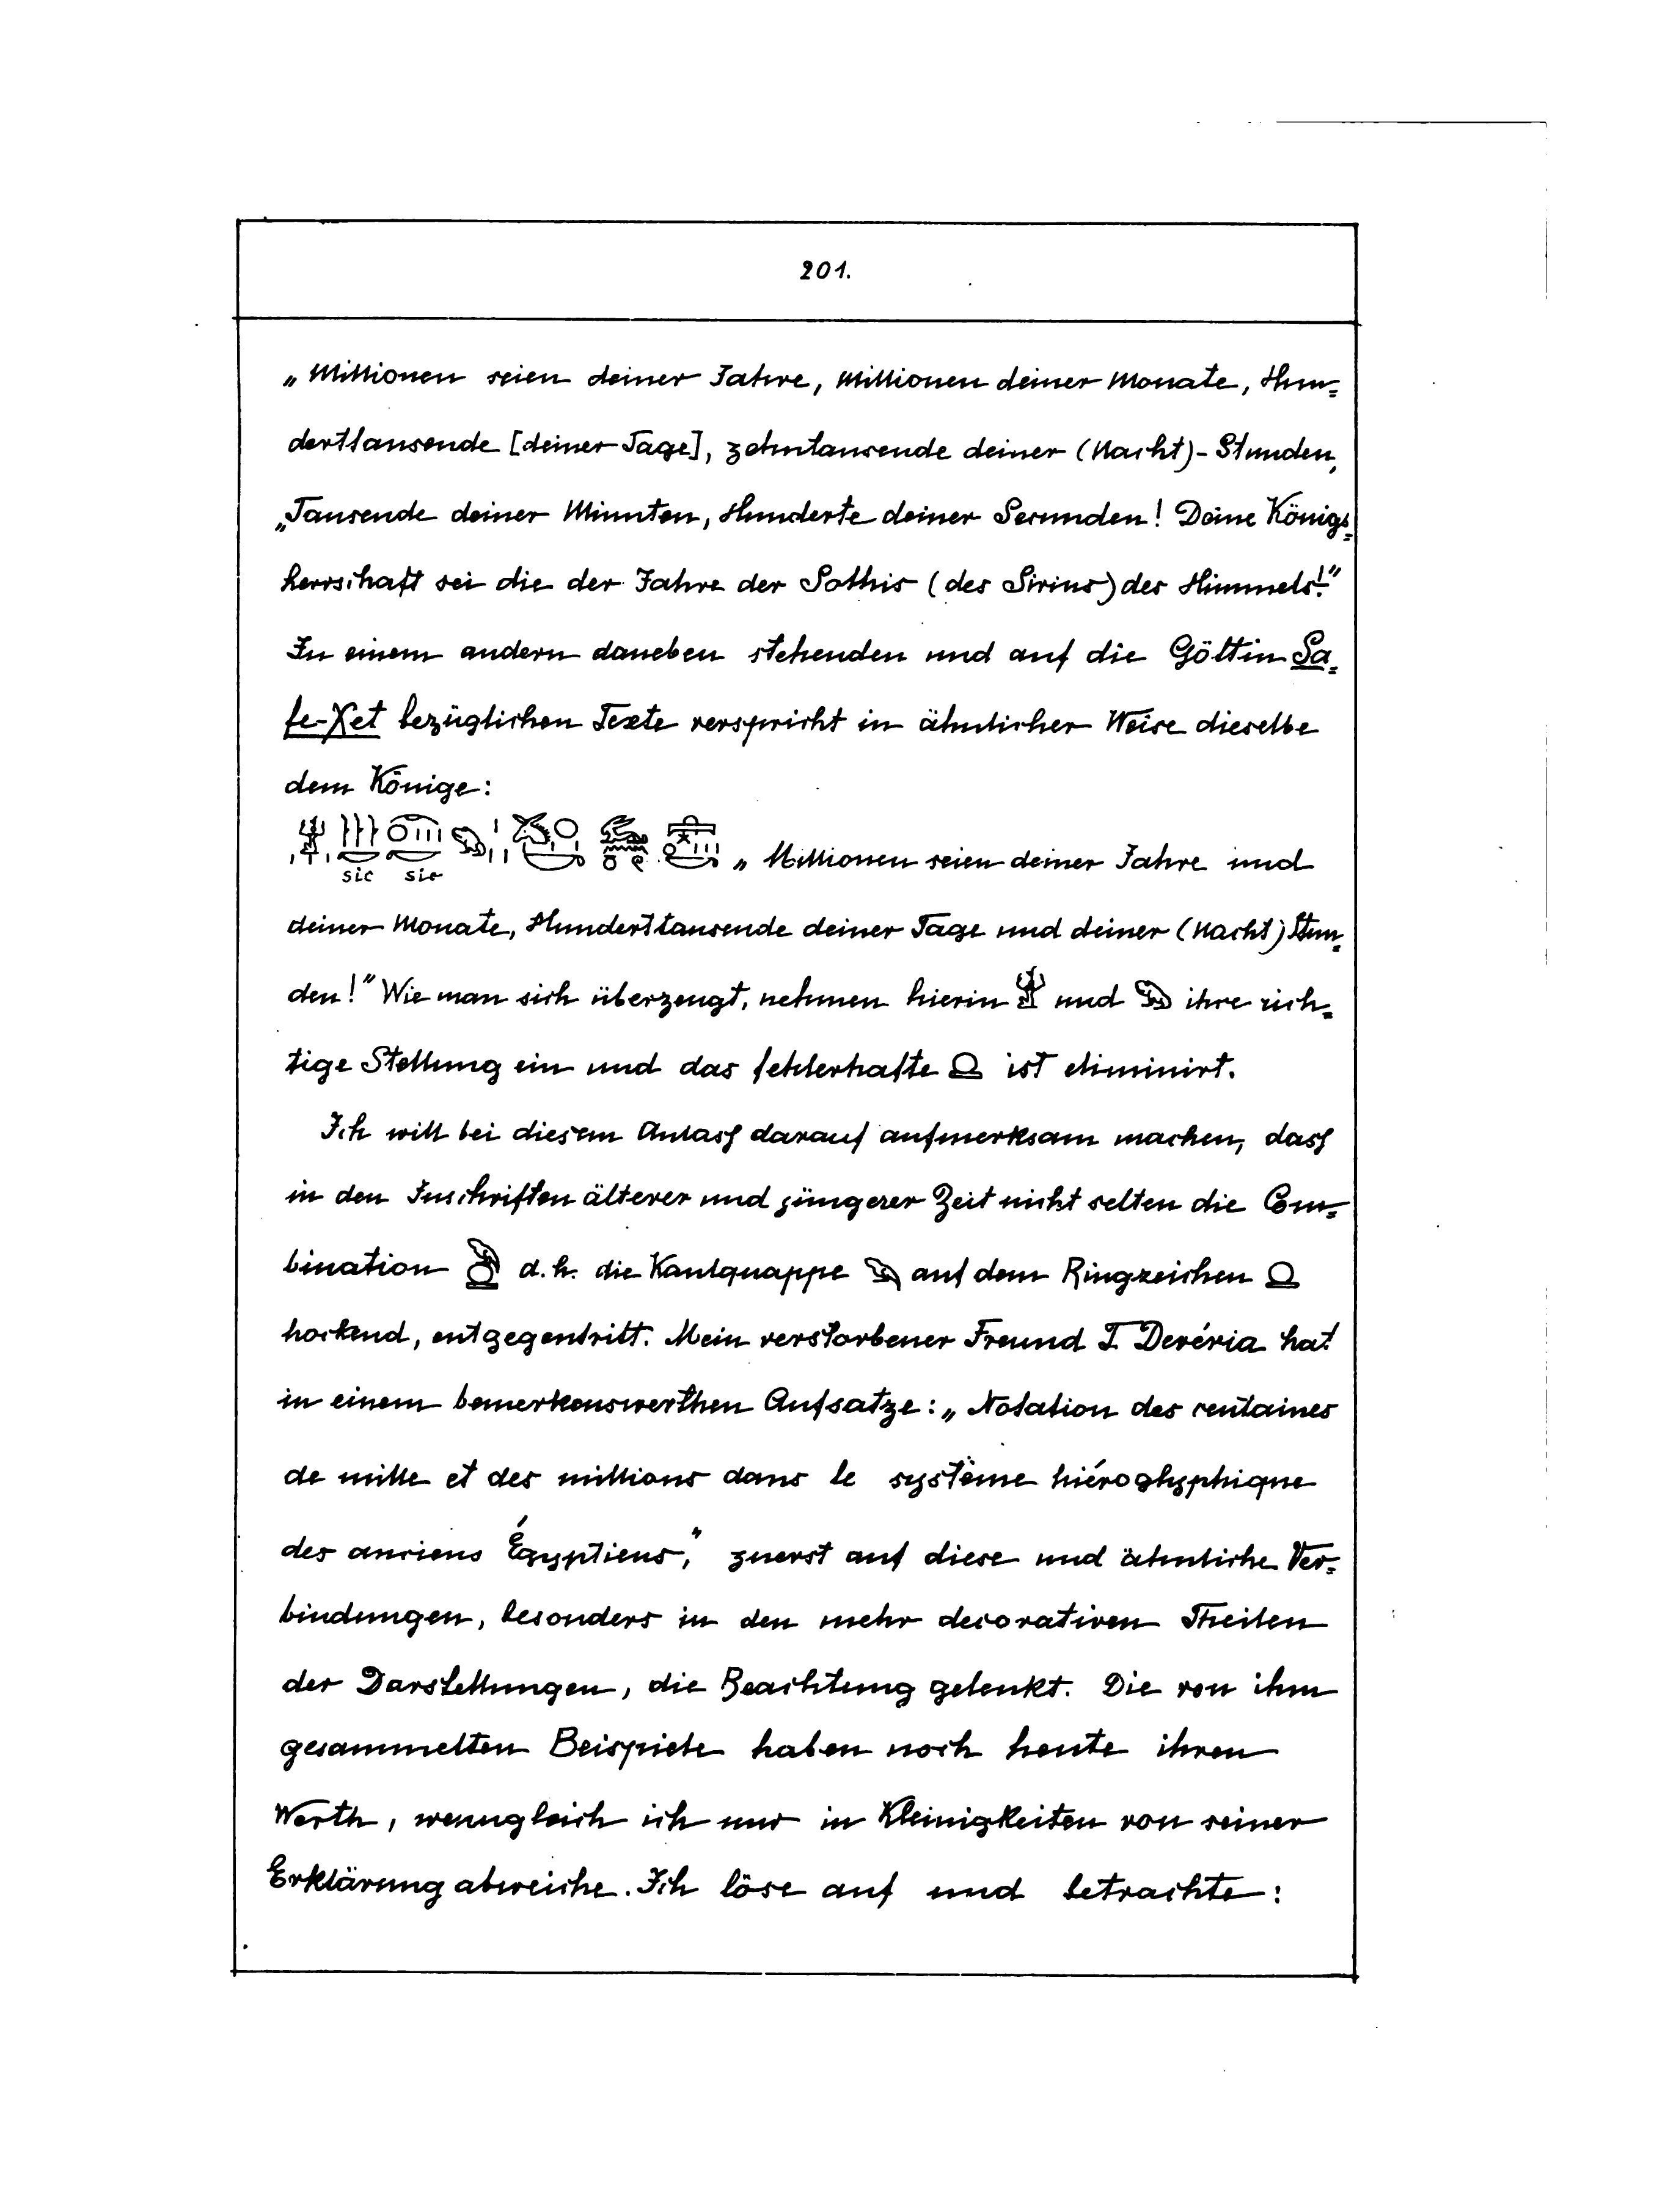 201.
„Millionen seien deiner Jahre, Millionen deiner Monate, Hun=
derttausende [deiner Tage], zehntausende deiner (Nacht)-Stunden,
„Tausende deiner Minuten, Hunderte deiner Secunden! Deine Königs=
herrschaft sei die der Jahre der Sothis (des Sirius) des Himmels!"
In einem andern daneben stehenden und auf die Göttin Sa=
fe-χet bezüglichen Texte verspricht in ähnlicher Weise dieselbe
dem Könige:
„Millionen seien deiner Jahre und
sic sic
deiner Monate, Hunderttausende deiner Tage und deiner (Nacht) Stun=
den!" Wie man sich überzeugt, nehmen hierin 𓁨 und 𓆐 ihre rich=
tige Stellung ein und das fehlerhafte 𓍶 ist eliminirt.
Ich will bei diesem Anlaß darauf aufmerksam machen, daß
in den Inschriften älterer und jüngerer Zeit nicht selten die Com=
bination d.h. die Kaulquappe 𓆐 auf dem Ringzeichen 𓍶
hockend, entgegentritt. Mein verstorbener Freund T. Devéria hat
in einem bemerkenswerthen Aufsatze: „Notation des centaines
de mille et des millions dans le système hiéroglyphique
des anciens Égyptiens," zuerst auf diese und ähnliche Ver=
bindungen, besonders in den mehr decorativen Theilen
der Darstellungen, die Beachtung gelenkt. Die von ihm
gesammelten Beispiele haben noch heute ihren
Werth, wenngleich ich nur in Kleinigkeiten von seiner
Erklärung abweiche. Ich löse auf und betrachte: